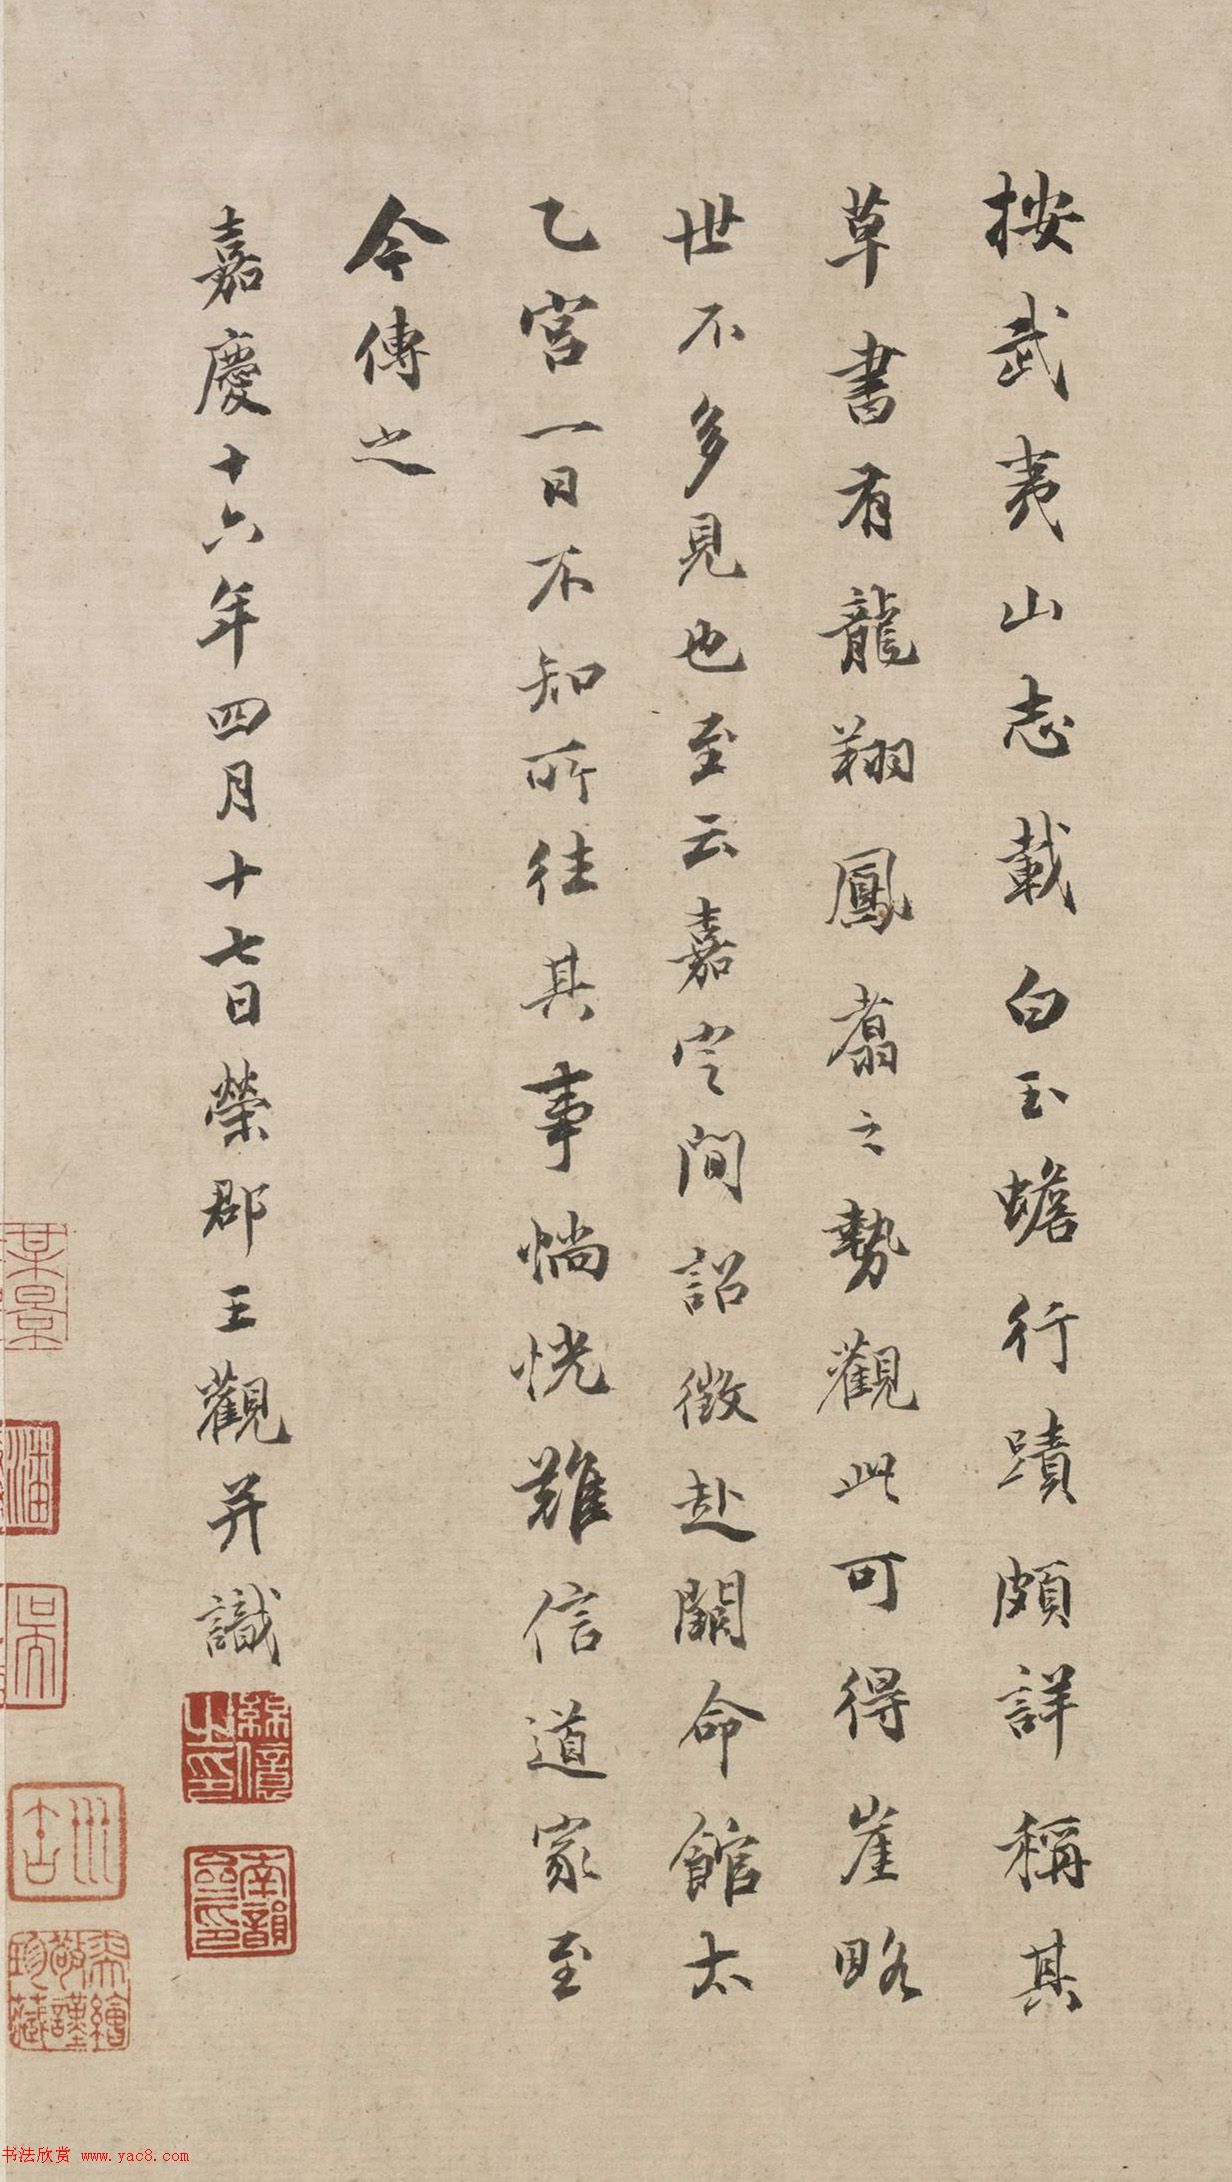 按武夷山志載白玉蟾行蹟頗詳稱其
草書有龍翔鳳翥之勢觀此可得崖略
世不多見也至云嘉定間詔徵赴闕命館太
乙宮一日不知所往其事惝恍難信道家至
今傳之
嘉慶十六年四月十七日榮郡王觀并識
緜億之印
南韻
潘
書法欣賞 www.yac8.com